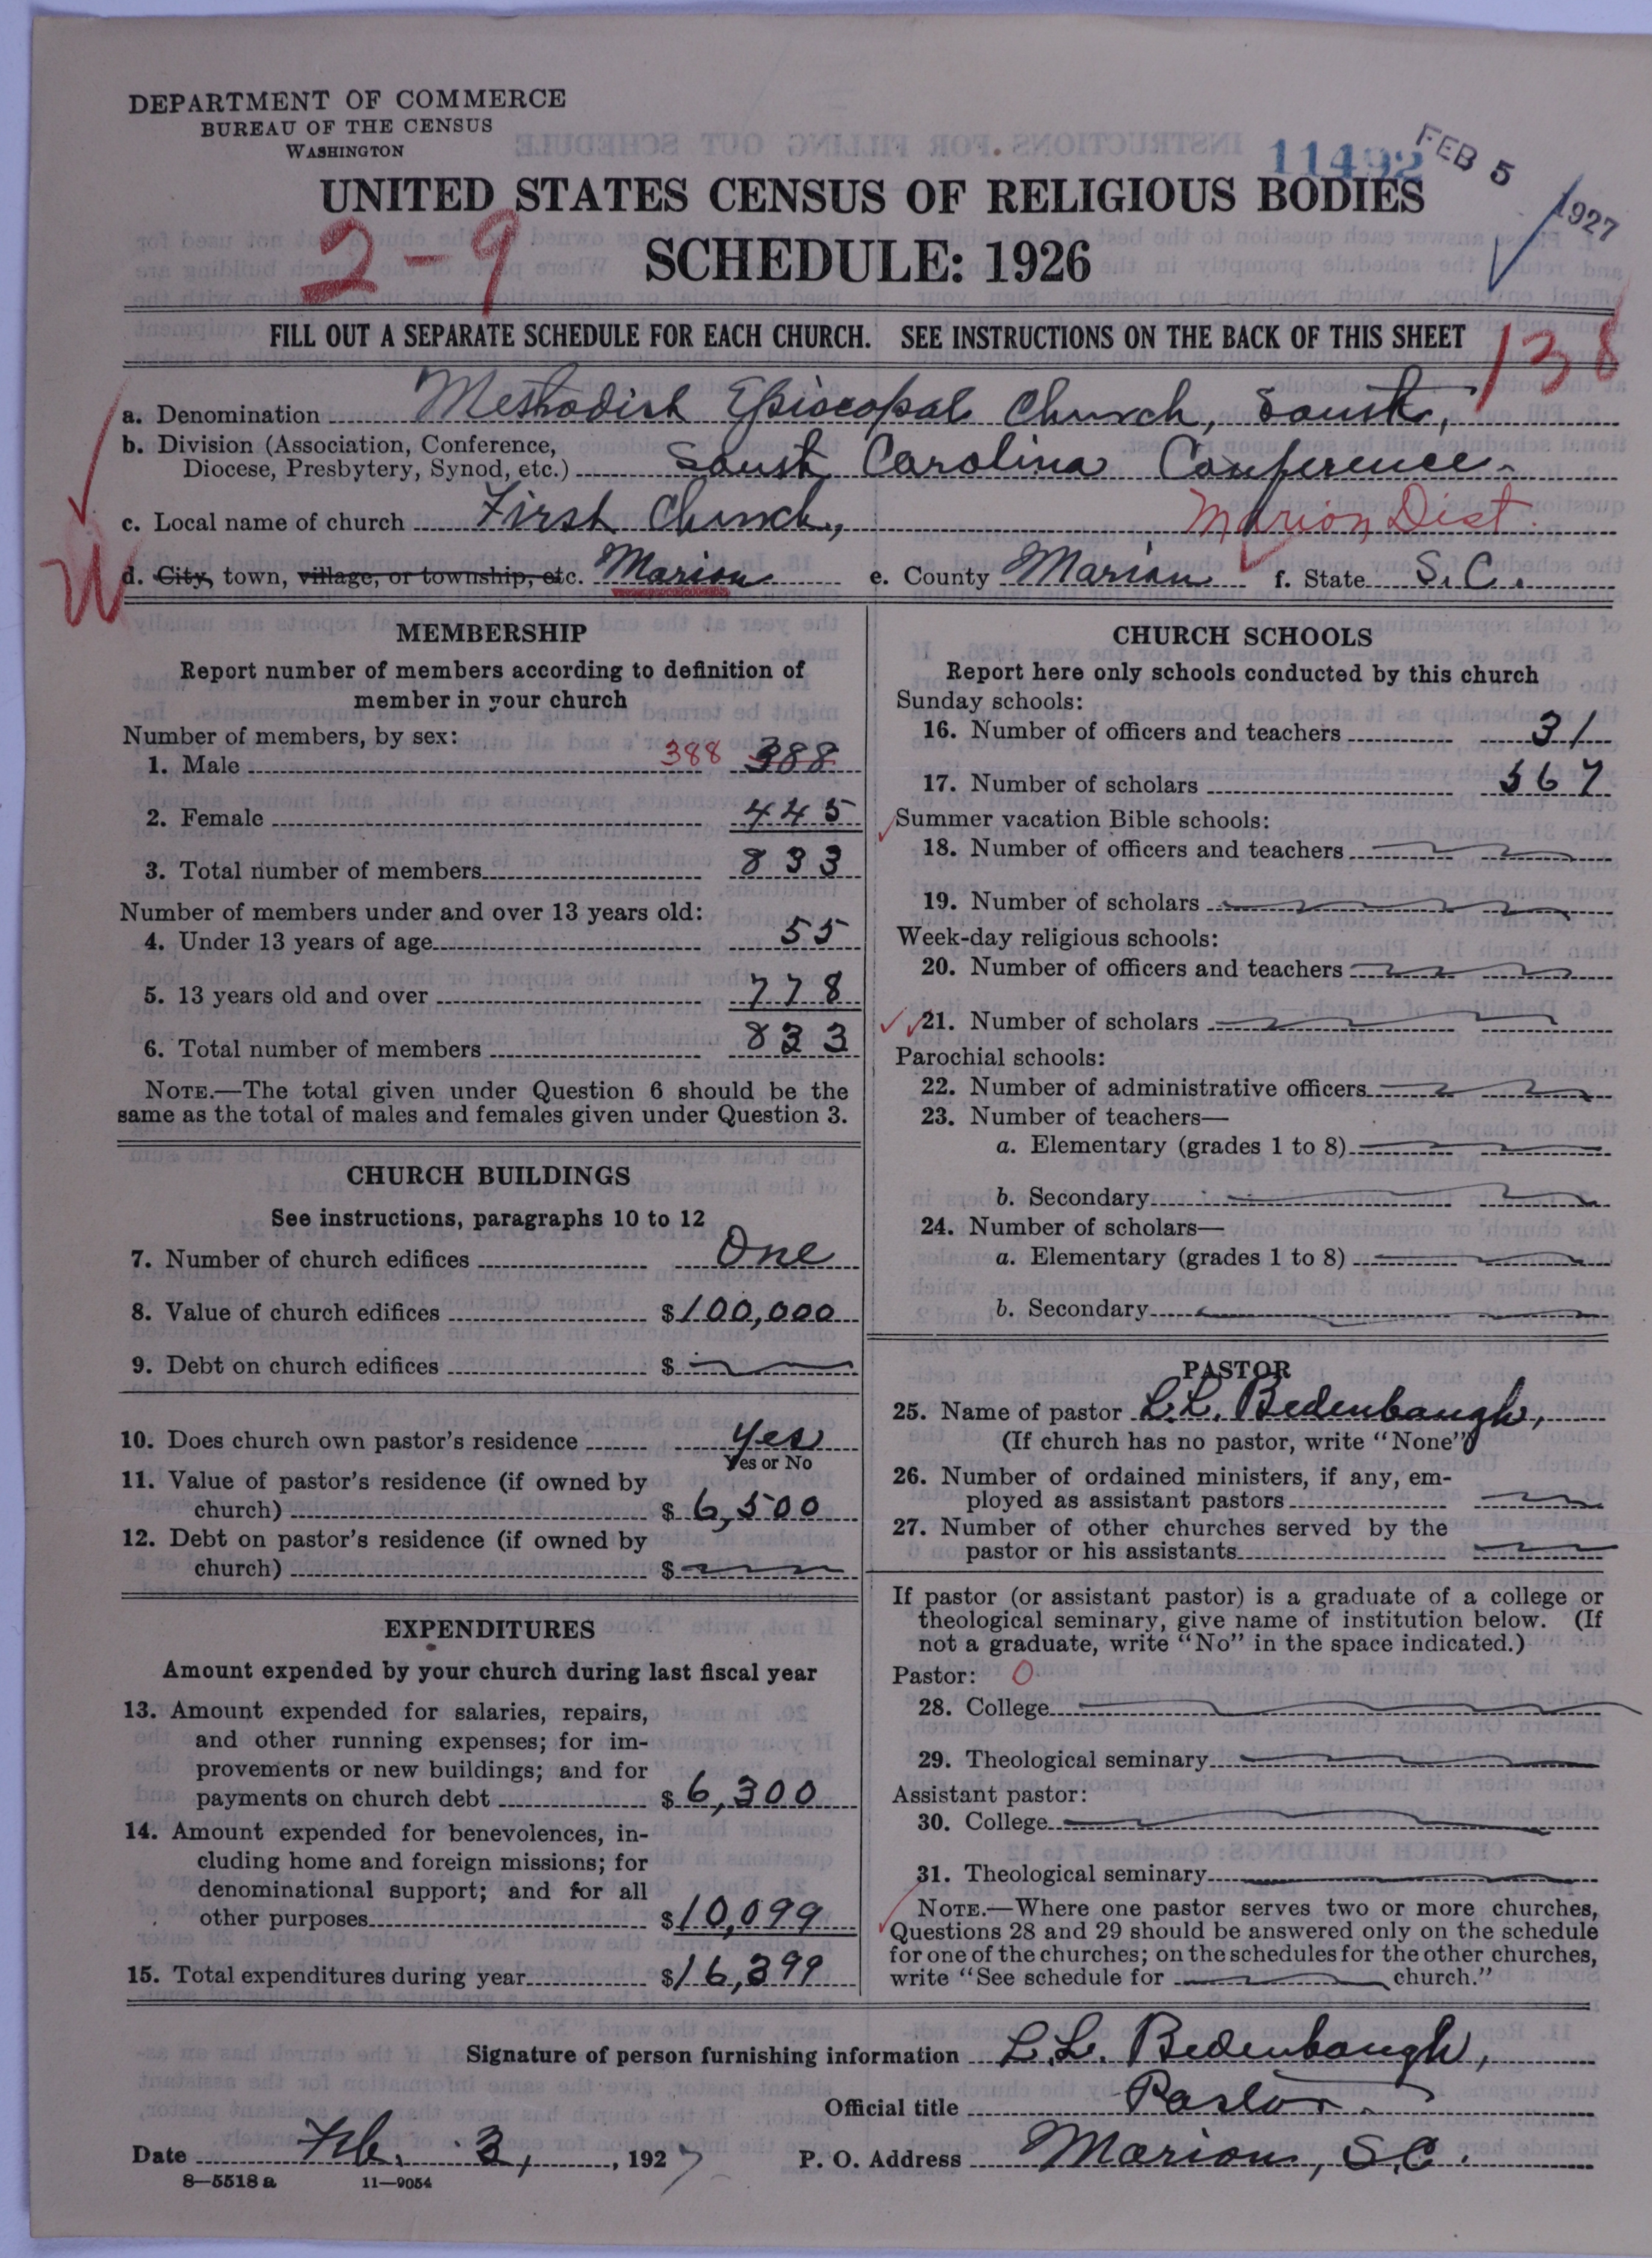 DEPARTMENT OF COMMERCE
BUREAU OF THE CENSUS
WASHINGTON
11492
FEB 5 1927
UNITED STATES CENSUS OF RELIGIOUS BODIES
2-9
SCHEDULE: 1926
FILL OUT A SEPARATE SCHEDULE FOR EACH CHURCH. SEE INSTRUCTIONS ON THE BACK OF THIS SHEET
138
a. Denomination Methodist Episcopal Church, South,
b. Division (Association, Conference,
Diocese, Presbytery, Synod, etc.) South Carolina Conference
c. Local name of church First Church, Marion Dist.
d. City, town, village, or township, etc. Marion e. County Marion f. State S.C.
MEMBERSHIP
Report number of members according to definition of
member in your church
Number of members, by sex:
1. Male 388 388
2. Female 445
3. Total number of members 833
Number of members under and over 13 years old:
4. Under 13 years of age 55
5. 13 years old and over 778
6. Total number of members 833
NOTE.—The total given under Question 6 should be the
same as the total of males and females given under Question 3.
CHURCH BUILDINGS
See instructions, paragraphs 10 to 12
7. Number of church edifices One
8. Value of church edifices $100,000
9. Debt on church edifices $
10. Does church own pastor's residence Yes
Yes or No
11. Value of pastor's residence (if owned by
church) $6,500
12. Debt on pastor's residence (if owned by
church) $
EXPENDITURES
Amount expended by your church during last fiscal year
13. Amount expended for salaries, repairs,
and other running expenses; for im-
provements or new buildings; and for
payments on church debt $6,300
14. Amount expended for benevolences, in-
cluding home and foreign missions; for
denominational support; and for all
other purposes $10,099
15. Total expenditures during year $16,399
CHURCH SCHOOLS
Report here only schools conducted by this church
Sunday schools:
16. Number of officers and teachers 31
17. Number of scholars 567
Summer vacation Bible schools:
18. Number of officers and teachers
19. Number of scholars
Week-day religious schools:
20. Number of officers and teachers
21. Number of scholars
Parochial schools:
22. Number of administrative officers
23. Number of teachers—
a. Elementary (grades 1 to 8)
b. Secondary
24. Number of scholars—
a. Elementary (grades 1 to 8)
b. Secondary
PASTOR
25. Name of pastor L.L. Bedenbaugh,
(If church has no pastor, write "None")
26. Number of ordained ministers, if any, em-
ployed as assistant pastors
27. Number of other churches served by the
pastor or his assistants
If pastor (or assistant pastor) is a graduate of a college or
theological seminary, give name of institution below. (If
not a graduate, write "No" in the space indicated.)
Pastor: 0
28. College
29. Theological seminary
Assistant pastor:
30. College
31. Theological seminary
NOTE.—Where one pastor serves two or more churches,
Questions 28 and 29 should be answered only on the schedule
for one of the churches; on the schedules for the other churches,
write "See schedule for church."
Signature of person furnishing information L.L. Bedenbaugh,
Official title Pastor
Date Feb. 3, 1927 P. O. Address Marion, S.C.
8—5518 a 11—9054